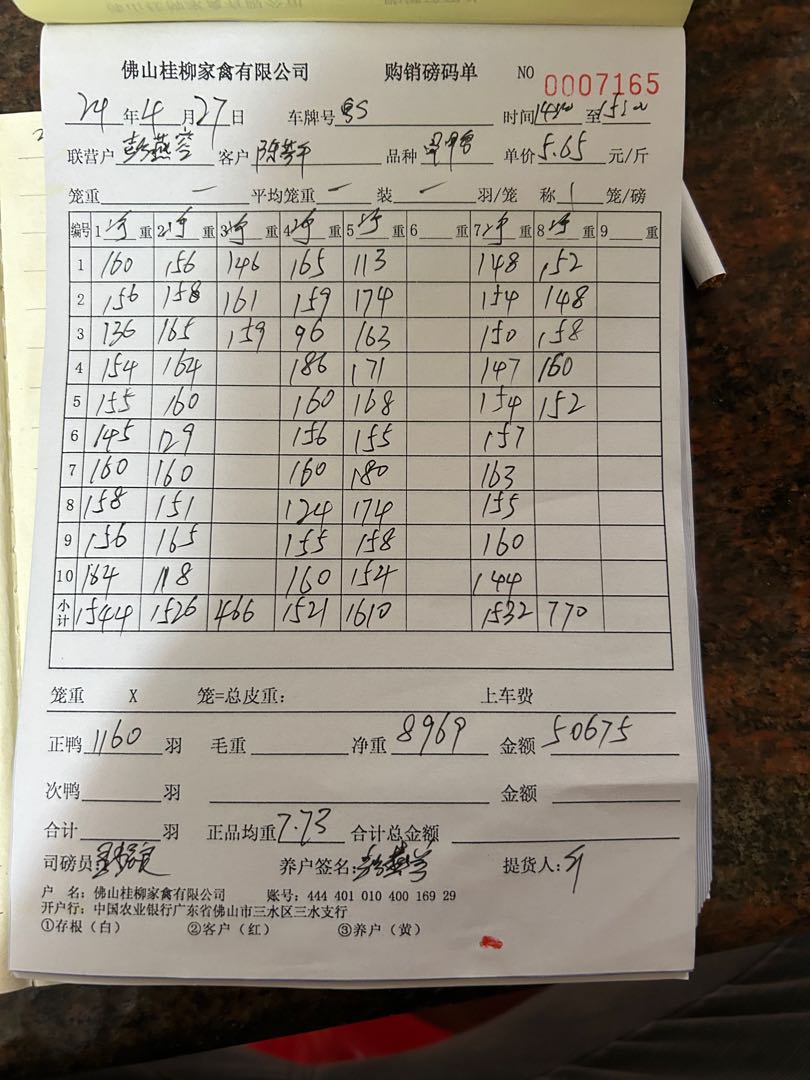 佛山桂柳家禽有限公司 购销磅码单 NO 0007165
24年4月27日 车牌号 粤S 时间 至
联营户 彭燕 客户 品种 单价5.65元/斤
笼重 一 平均笼重 一 装 一 羽/笼 称 1 笼/磅
编号 1净重 2净重 3净重 4净重 5净重 6重 7净重 8净重 9重
1 160 156 146 165 113 148 152
2 156 158 161 159 174 154 148
3 136 165 159 96 163 150 158
4 154 164 186 171 147 160
5 155 160 160 168 154 152
6 145 129 156 155 157
7 160 160 160 180 163
8 158 151 124 174 155
9 156 165 155 158 160
10 164 118 160 154 144
小计 1544 1526 466 1521 1610 1532 770
笼重 X 笼=总皮重: 上车费
正鸭1160羽 毛重 净重8969 金额50675
次鸭 羽 金额
合计 羽 正品均重7.73 合计总金额
司磅员 养户签名: 提货人:
户 名: 佛山桂柳家禽有限公司 账号: 444 401 010 400 169 29
开户行: 中国农业银行广东省佛山市三水区三水支行
①存根(白) ②客户(红) ③养户(黄)